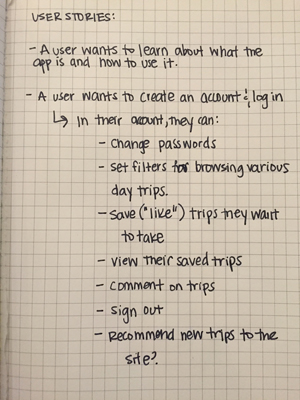 USER STORIES:
- A user wants to learn about what the
app is and how to use it.
- A user wants to create an account & log in
↳ In their account, they can:
- change passwords
- set filters for browsing various
day trips.
- save ("like") trips they want
to take
- view their saved trips
- comment on trips
- sign out
- Recommend new trips to the
site?